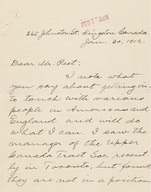 FEB 1 1912
265 Johnston St. Kingston Canada
Jan. 30. 1912.
Dear Mr. Post:
I note what
you say about getting in
to touch with various
people in America and
England and will do
what I can. I saw the
manager of the Upper
Canada Tract Soc. recent
ly in Toronto, but
they are not in a position